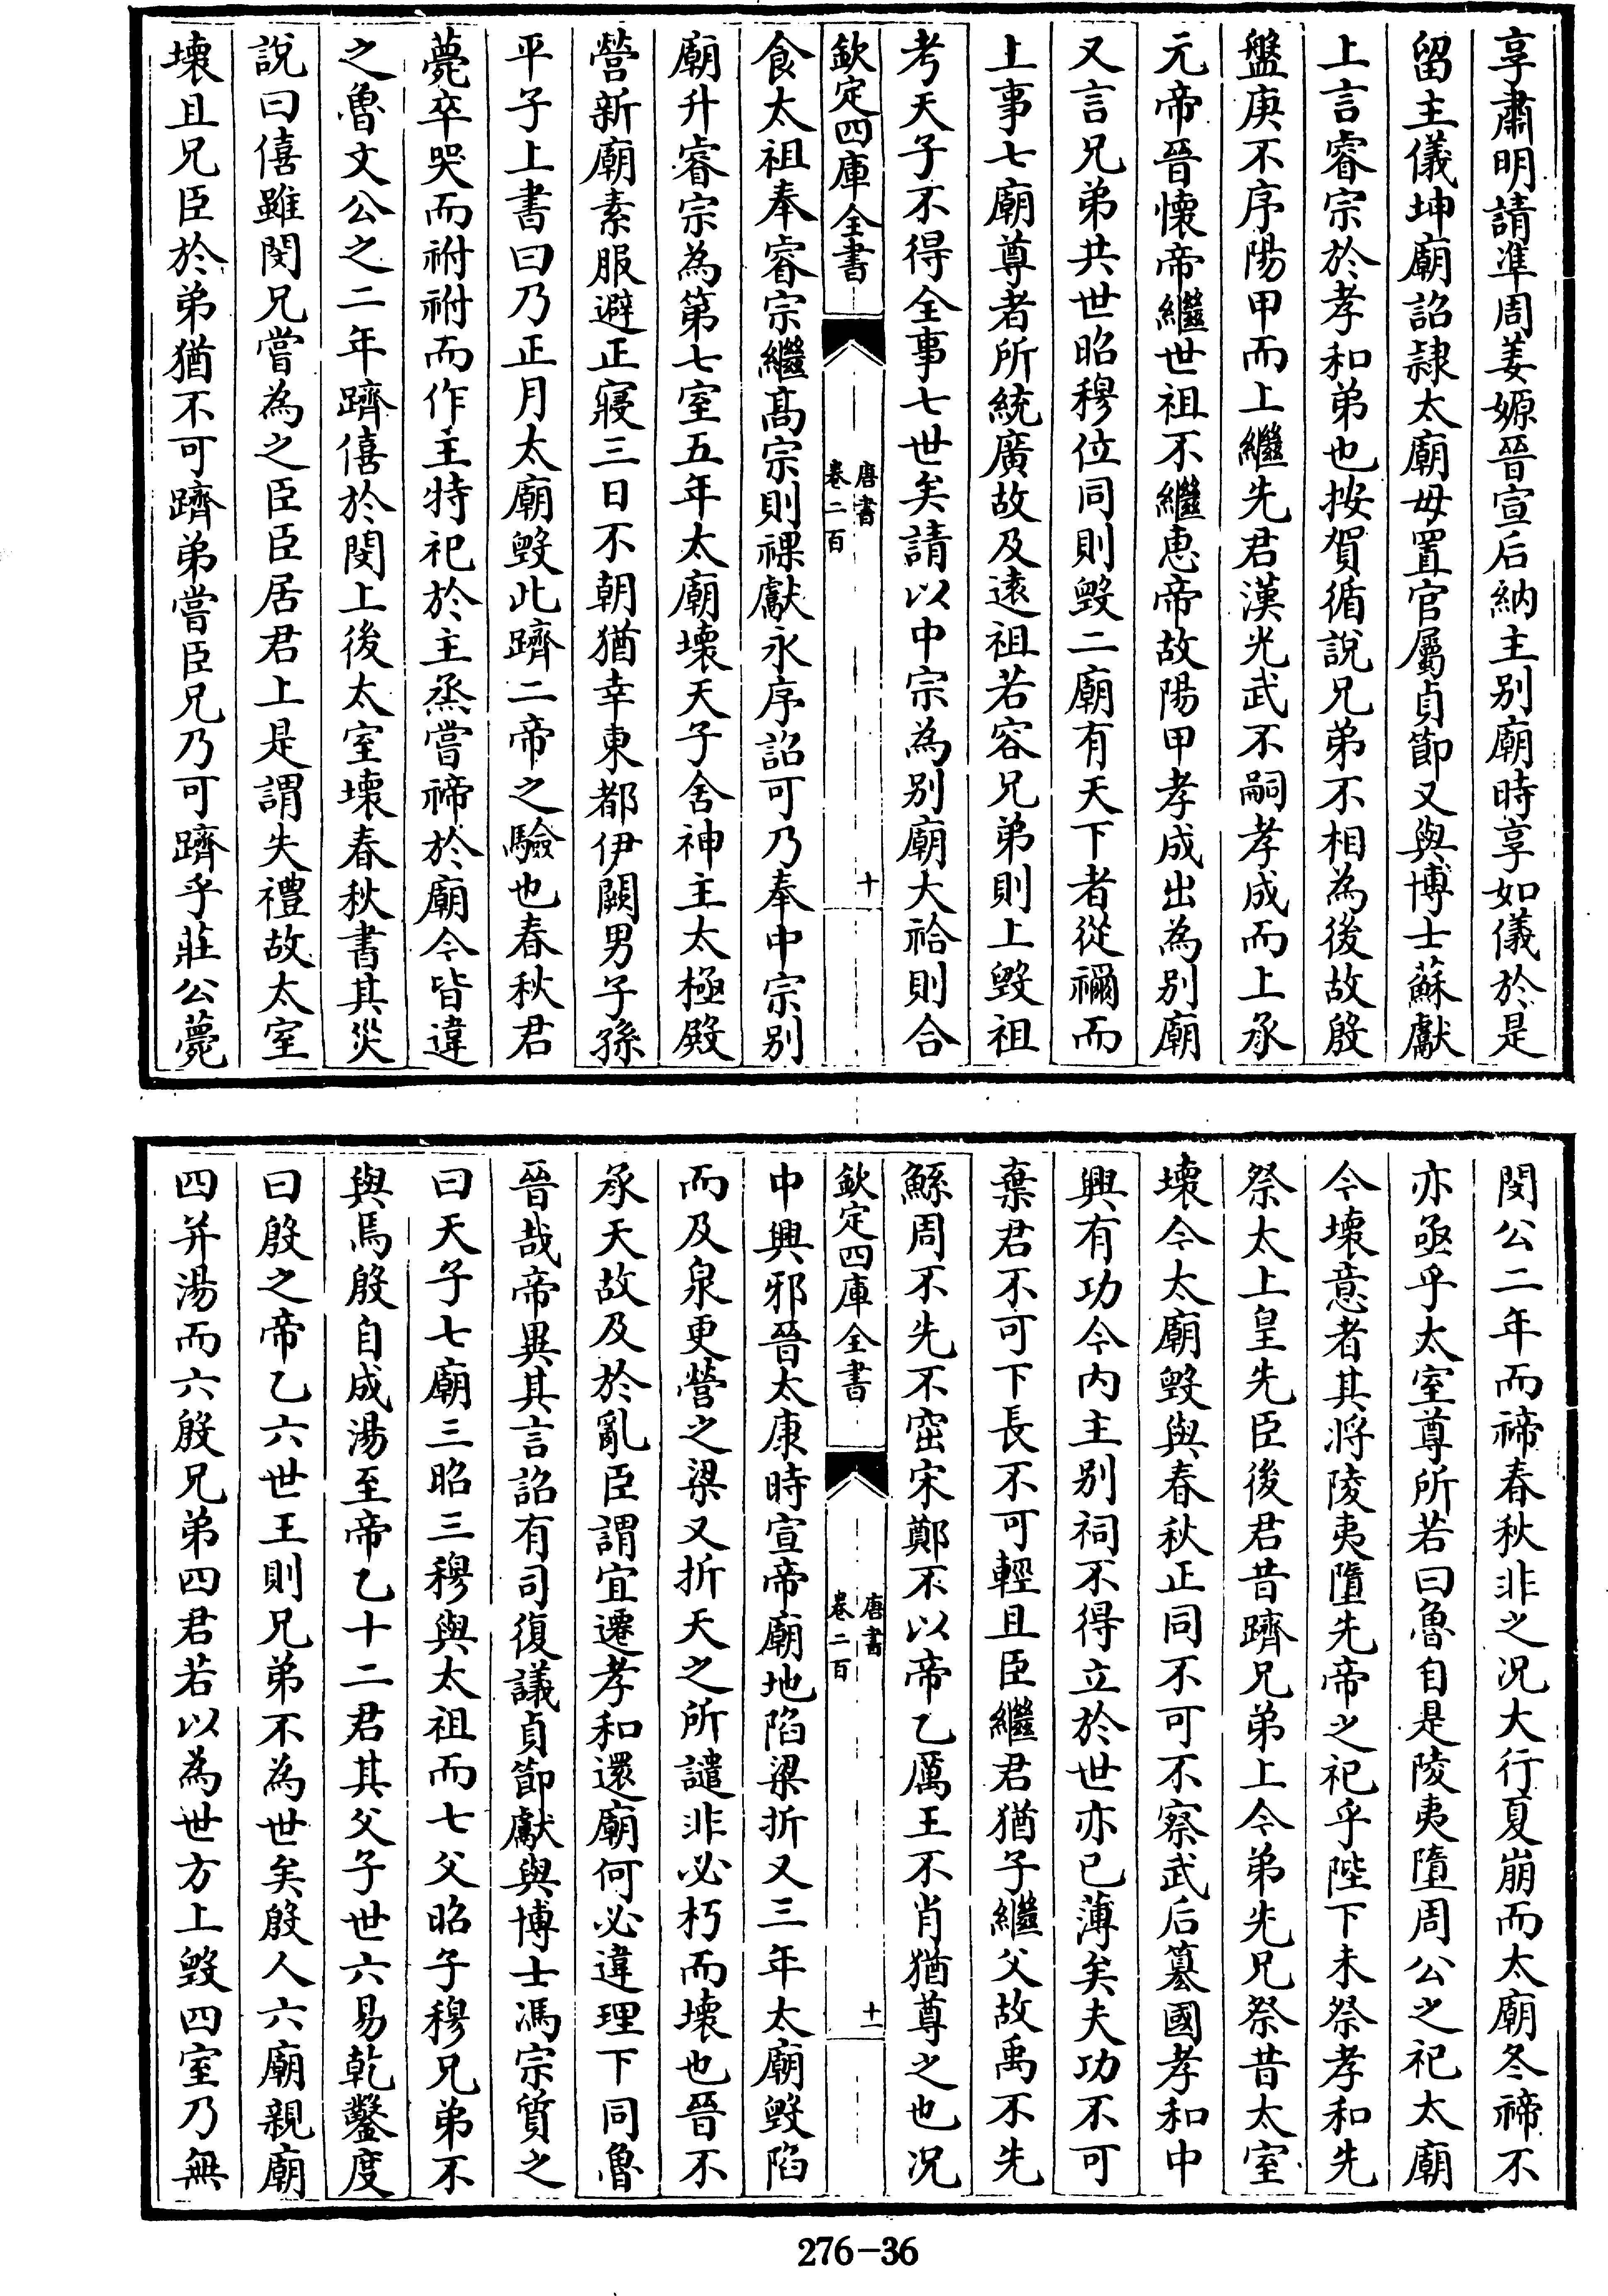 享肅明請準周姜嫄晉宣后納主别廟時享如儀於是
留主儀坤廟詔隸太廟毋置官屬貞節又與博士蘇獻
上言睿宗於孝和弟也按賀循說兄弟不相為後故殷
盤庚不序陽甲而上繼先君漢光武不嗣孝成而上承
元帝晉懷帝繼世祖不繼惠帝故陽甲孝成出為别廟
又言兄弟共世昭穆位同則毀二廟有天下者從禰而
上事七廟尊者所統廣故及遠祖若容兄弟則上毀祖
考天子不得全事七世矣請以中宗為别廟大祫則合
欽定四庫全書
唐書
卷二百
十
食太祖奉睿宗繼髙宗則祼獻永序詔可乃奉中宗别
廟升睿宗為第七室五年太廟壞天子舍神主太極殿
營新廟素服避正寢三日不朝猶幸東都伊闕男子孫
平子上書曰乃正月太廟毀此躋二帝之驗也春秋君
薨卒哭而祔祔而作主特祀於主烝嘗禘於廟今皆違
之魯文公之二年躋僖於閔上後太室壞春秋書其災
說曰僖雖閔兄嘗為之臣臣居君上是謂失禮故太室
壞且兄臣於弟猶不可躋弟嘗臣兄乃可躋乎莊公薨
閔公二年而禘春秋非之况大行夏崩而太廟冬禘不
亦亟乎太室尊所若曰魯自是陵夷墮周公之祀太廟
今壞意者其將陵夷墮先帝之祀乎陛下未祭孝和先
祭太上皇先臣後君昔躋兄弟上今弟先兄祭昔太室
壞今太廟毀與春秋正同不可不察武后簒國孝和中
興有功今内主别祠不得立於世亦已薄矣夫功不可
棄君不可下長不可輕且臣繼君猶子繼父故禹不先
鯀周不先不窋宋鄭不以帝乙厲王不肖猶尊之也况
欽定四庫全書
唐書
卷二百
十一
中興邪晉太康時宣帝廟地陷梁折又三年太廟毀陷
而及泉更營之梁又折天之所譴非必朽而壞也晉不
承天故及於亂臣謂宜遷孝和還廟何必違理下同魯
晉哉帝異其言詔有司復議貞節獻與博士馮宗質之
曰天子七廟三昭三穆與太祖而七父昭子穆兄弟不
與焉殷自成湯至帝乙十二君其父子世六易乾鑿度
曰殷之帝乙六世王則兄弟不為世矣殷人六廟親廟
四并湯而六殷兄弟四君若以為世方上毀四室乃無
276-36